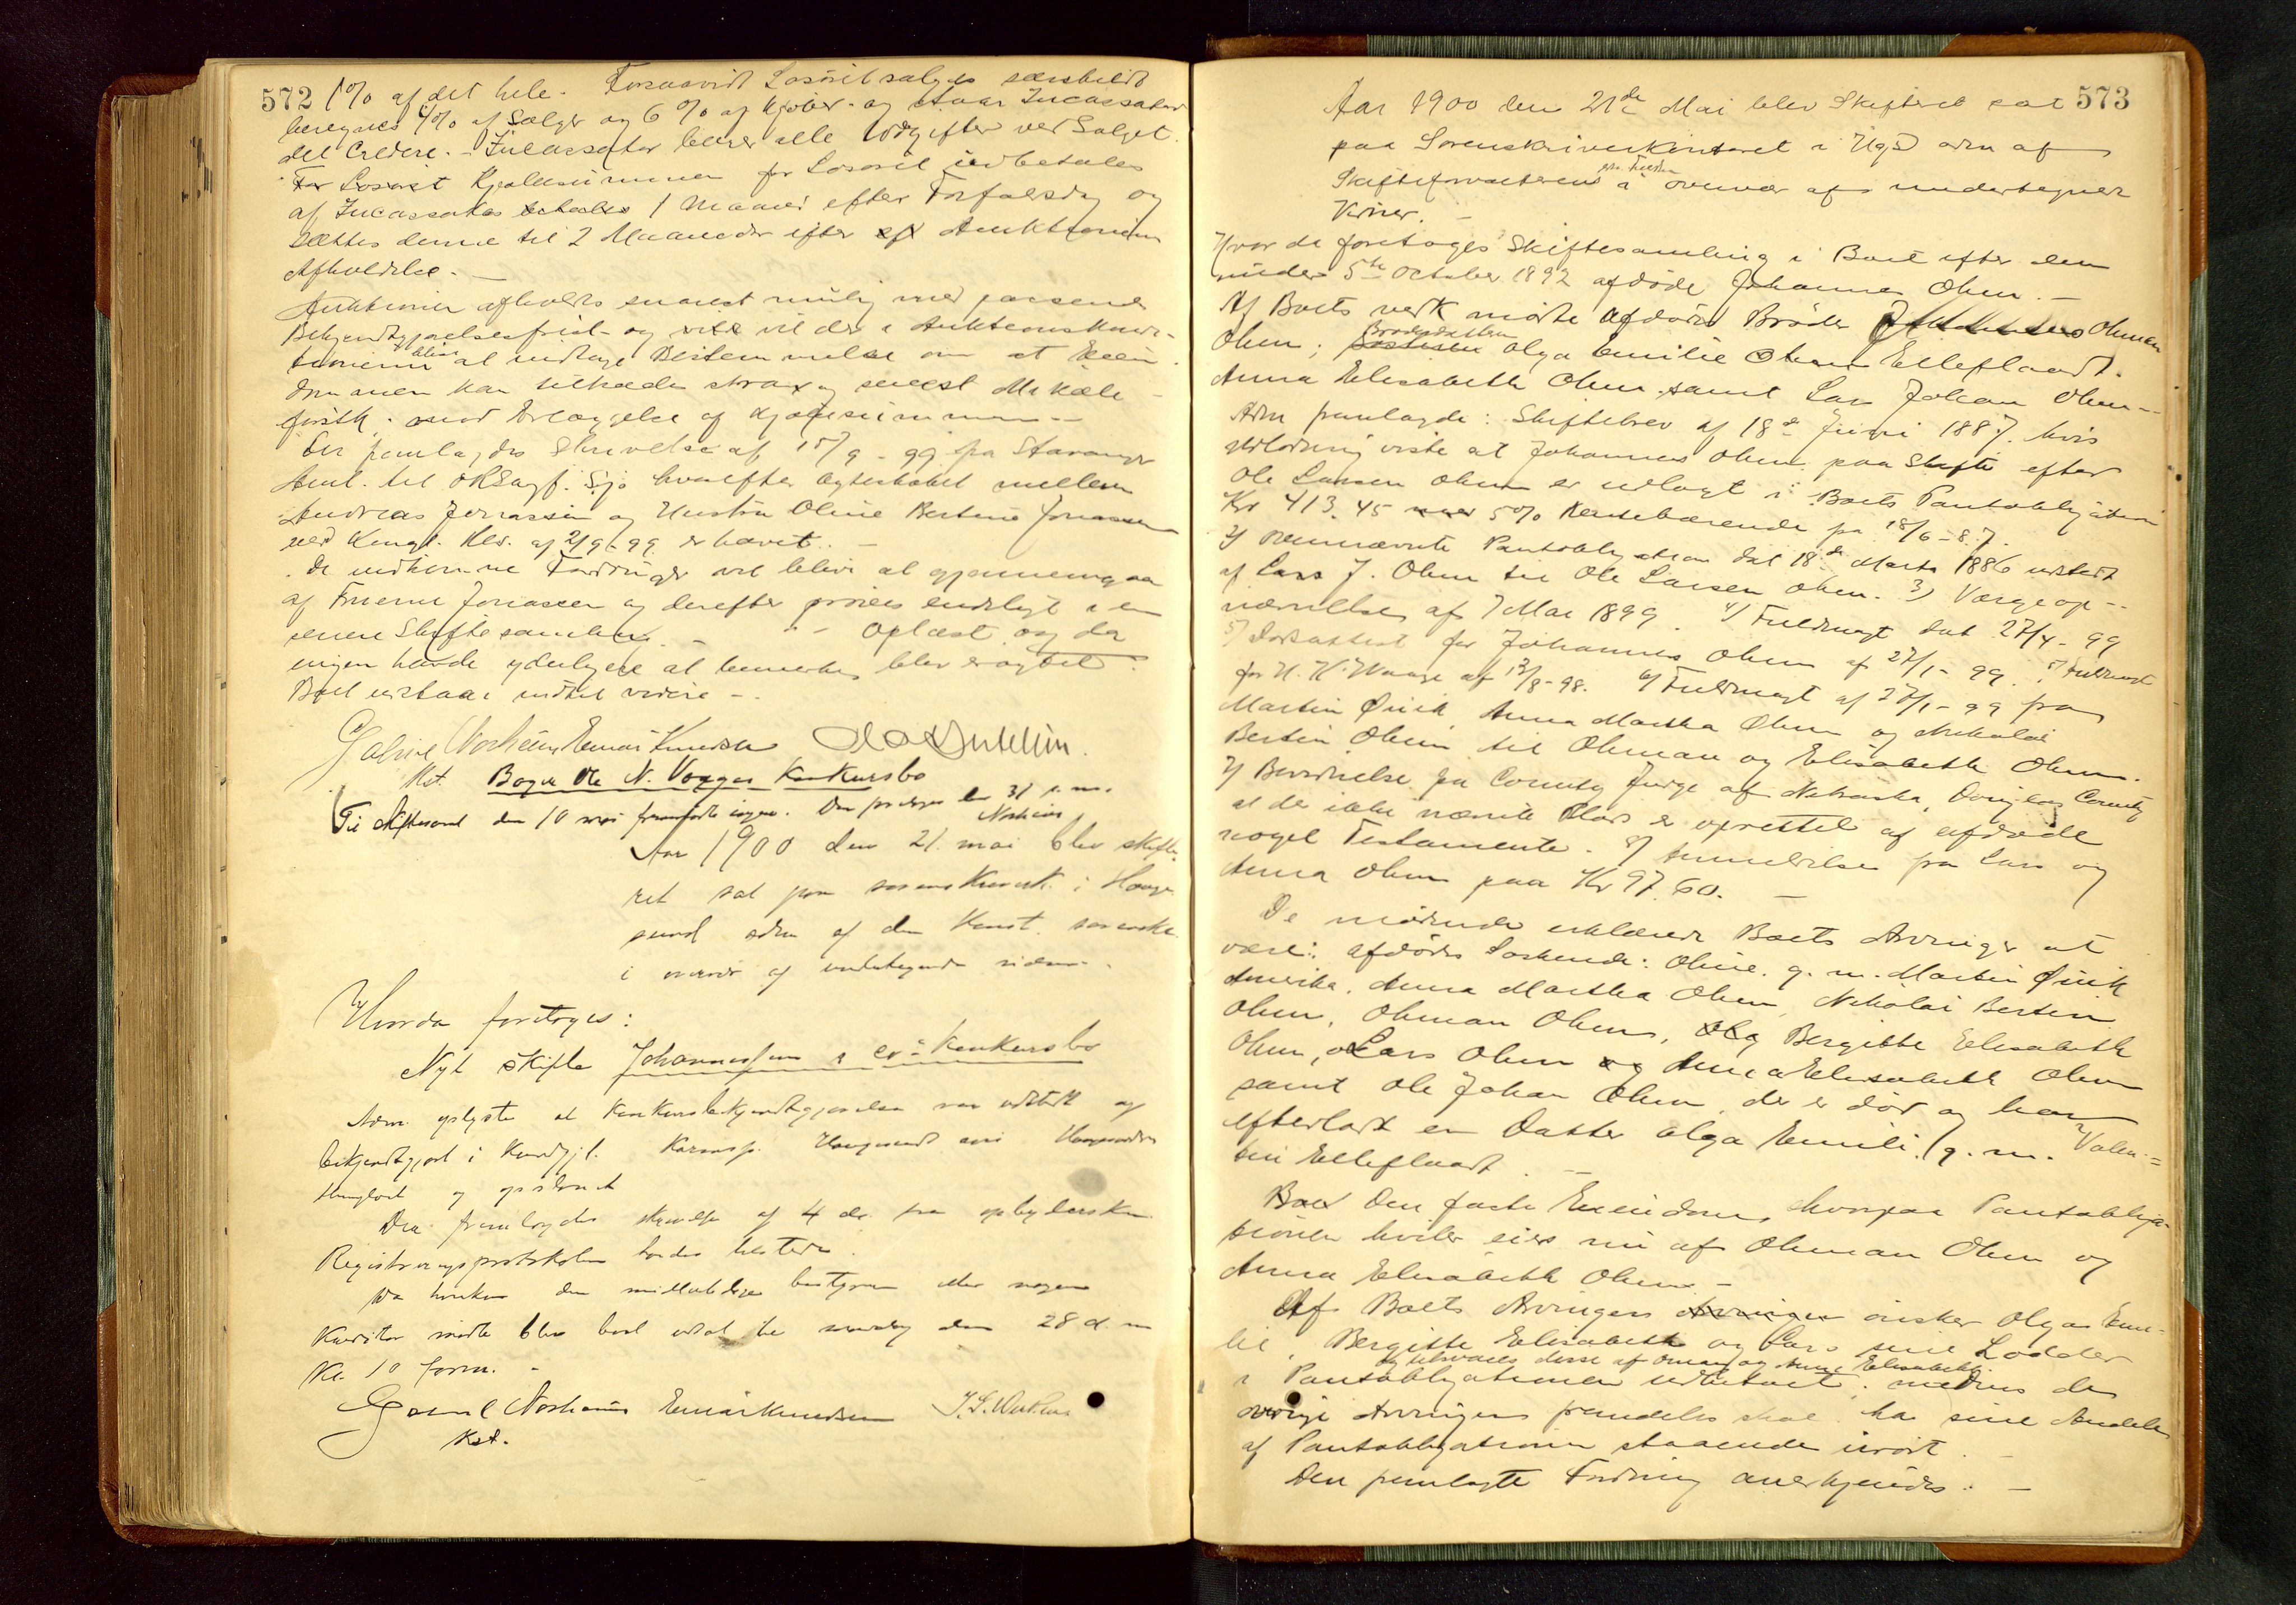 572
1% af det hele. Forsaavidt Løsøret sælges særskildt
beregnes 4% af Sælger og 6% af Kjøber og staar Incassator
del Credere. Incassator bærer alle Udgifter ved Salget.
For Løsøret Kjøbesummen for Løsøret indbetales
af Incassator betales 1 Maaned efter Forfaldsdag og
sættes denne til 2 Maaneder efter Auktionens
Afholdelse.
Auktioner afholdes snarest mulig med passende
Bekjendtgjørelsesfrist og vil der i Auktionskondi-
tionerne blive at indtage Bestemmelse om at Eien-
dommen kan tiltrædes strax og senest
mod Erlæggelse af Kjøbesummen
Der fremlagdes Skrivelse af 15/9 - 99 fra Stavanger
Amt. til ORSagf. hvorefter Ægteskabet mellem
Andreas Jonassen og Hustru Oline Bertine Jonassen
ved Kongl. Res. af 2/9-99 er hævet.
De indkomne Fordringer vil blive at gjennemgaa
af Fruerne Jonassen og derefter prøves endeligt i en
senere Skiftesamling. - Oplæst og da
ingen havde yderligere at bemerke blev
Boet udstaar indtil videre -
Gabriel Norheim Einar Knudsen
Kst. Boger Ole N. Vaages Konkursbo
Til Skiftesaml den 10 mai fremførte ingen. Den 31 d.m.
Norheim
Aar 1900 den 21. mai blev skifte-
ret sat paa sorenskriverk. i Hauge-
sund adm af den Konst. sorenskr.
i overvær af undertegnede vidner.
Hvorda foretoges:
Nyt skifte Johannessen & co's Konkursbo
Adm. oplyste at Konkursbekjendtgjørelsen var udstedt og
bekjendtgjort i Kundgjt. Karmsp. Haugesund avis Haugesunds
thinglæst og opslaaet
Der fremlagdes skrivelse af 4 ds. fra
Registreringsprotokollen
Da hverken den midlertidige bestyrer eller nogen
Kreditor mødte blev boet udsat til mandag den 28 d. m
Kl. 10 form. -
Gabriel Norheim Einar Knudsen
Kst.
573
Aar 1900 den 21de Mai blev Skifteret sat
paa Sorenskriverkontoret i Hgsd adm af
Skifteforvalterens i overvær af undertegnede
Vidner. -
Hvor da foretoges Skiftesamling i Boet efter den
under 5te October 1892 afdøde Johannes Olsen. -
Af Boets vedk mødte afdødes Brødre Olsen
Broderdatteren
Olsen; Olga Emilie Olsen Elleflaadt.
Anna Elisabeth Olsen samt Lars Johan Olsen -
Adm fremlagde: Skiftebrev af 18de Juni 1887. hvis
Udlodning viste at Johannes Olsen paa Skifte efter
Ole Larsen Olsen er udlagt i Boets Pantobligation
Kr 413.45 5% Rentebærende fra 18/6-87.
2/ ovennævnte Pantobligation dat 18de Marts 1886 udstedt
af Lars J. Olsen til Ole Larsen Olsen. 3) Værgeop--
nævnelse af 7 Mai 1899. 4/ Fuldmagt dat 27/4-99
5/ Dødsattest for Johannes Olsen af 27/1-99. 5/ Fuldmagt
for H. H. Waage af 13/8-98. 6/ Fuldmagt af 27/1-99 fra
Martin Qvick, Anna Martha Olsen og Nikolai
Bertin Olsen til Olsen og Elisabeth Olsen.
7/ Bevidnelse fra County Judge af Nebraska, Douglas County
at der ikke nævnte Plads er oprettet af afdøde
noget Testamente. 8/ Anmeldelse fra Lars og
Anna Olsen paa Kr 97.60. -
De mødende erklærede Boets Arvinger at
være: afdødes Søskende: Oline. g. m. Martin Qvick
Amerika. Anna Martha Olsen, Nikolai Bertin
Olsen, Olsen, Bergitte Elisabeth
Olsen, Lars Olsen og Anna Elisabeth Olsen
samt Ole Johan Olsen, der er død og har
efterladt en Datter Olga Emili (g. m. Valen-
tin Elleflaadt. -
Den faste Eiendom, hvorpaa Pantobliga-
tionen hviler eies nu af Olsen og
Anna Elisabeth Olsen -
Af Boets Arvinger ønsker Olga Emi-
lie, Bergitte Elisabeth og Lars sine Lodder
i Pantobligationen udbetalt; medens de
øvrige Arvinger fremdeles skal ha sine Andele
af Pantobligationen staaende urørt.
Den fremlagte Fordring anerkjendes. -